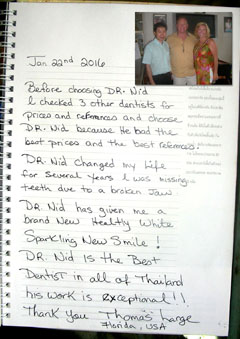 Jan. 22nd 2016
Before choosing DR. Nid
I checked 3 other dentists for
prices and references and choose
DR. Nid because He had the
best prices and the best references.
DR. Nid changed my Life
for several years I was missing
teeth due to a broken Jaw
DR. Nid has given me a
brand New Healthy White
Sparkling New Smile!
DR. Nid Is the Best
Dentist in all of Thailand
his work is exceptional!!
Thank You Thomas Large
Florida, USA